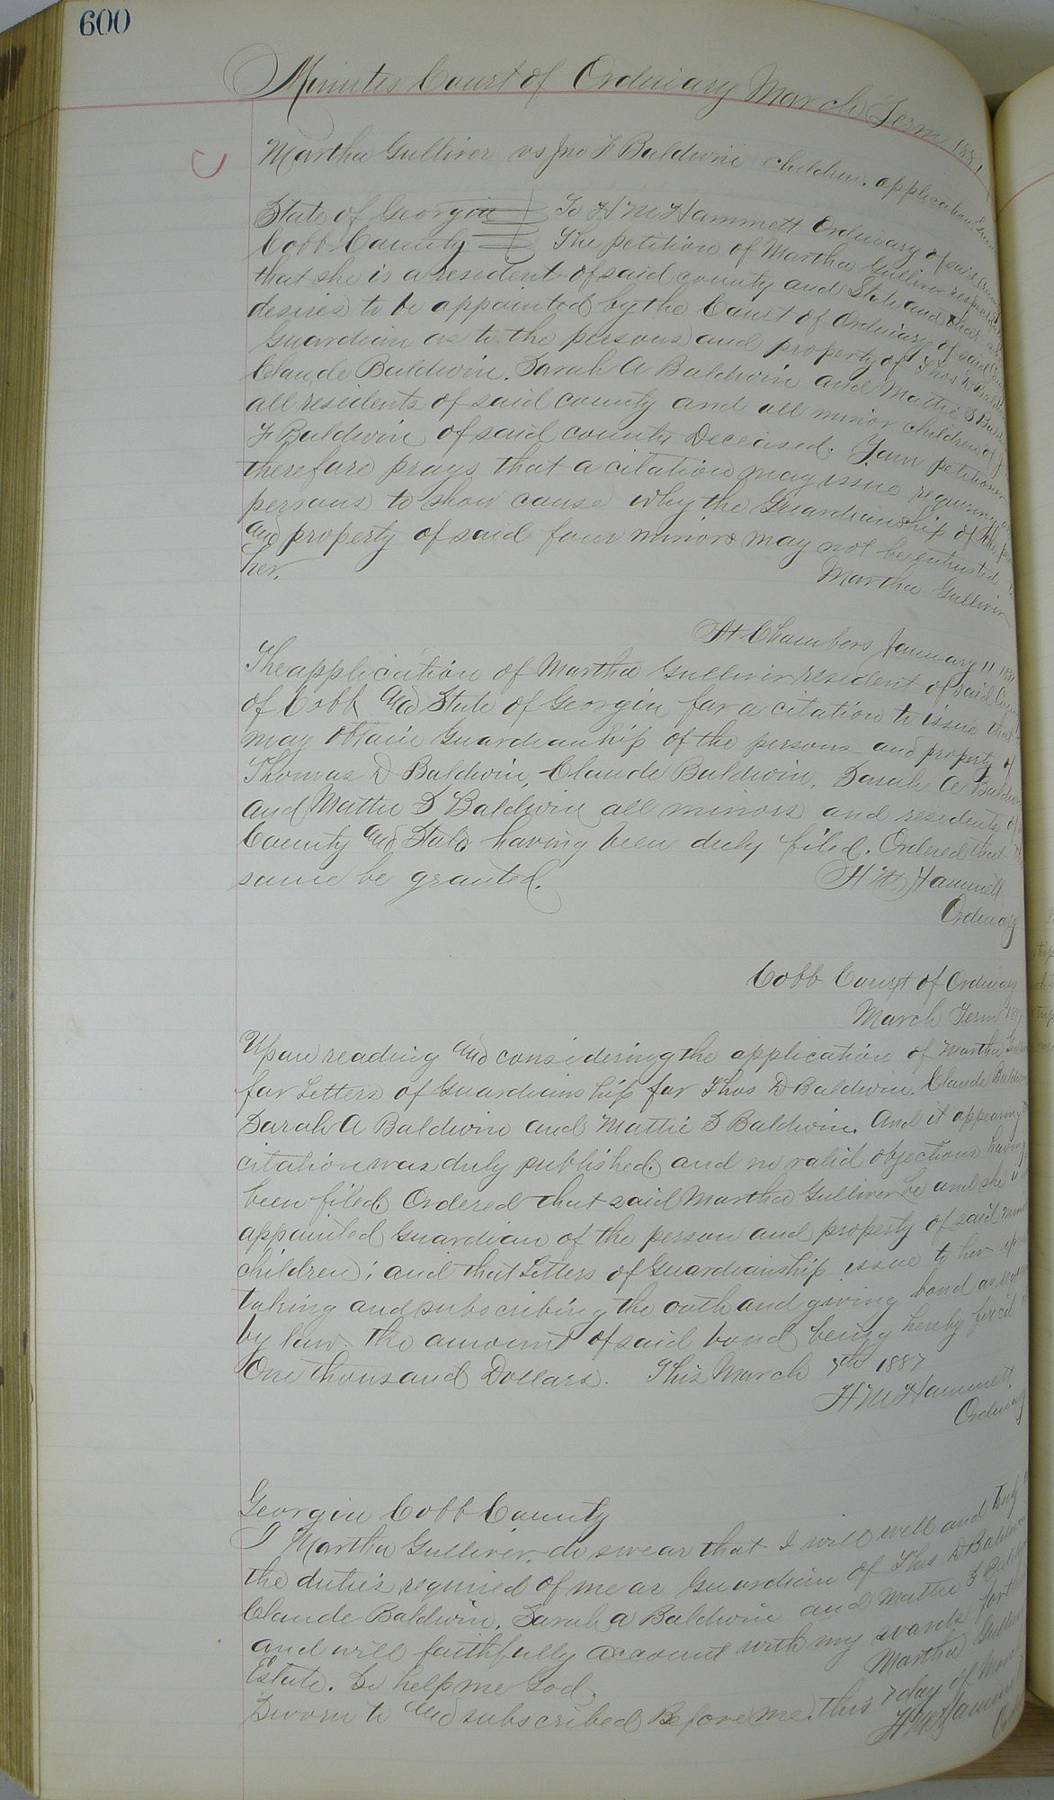 600
Minutes Court of Ordinary March Term 1887
Martha Gulliver vs Jno F Baldwin children. application
State of Georgia } To H M Hammett Ordinary of said
Cobb County } The petition of Martha Gulliver
that she is a resident of said county and State and that
desires to be appointed by the Court of Ordinary of said
Guardian as to the persons and property of Thos D
Claude Baldwin, Sarah A Baldwin and Mattie S
all residents of said county and all minor children of J
F Baldwin of said county Deceased. Your petitioner
therefore prays that a citation may issue requiring
persons to show cause why the Guardianship of the
and property of said four minors may not be entrusted to
her.
Martha Gulliver
At Chambers January 11
The application of Martha Gulliver resident of said
of Cobb and State of Georgia for a citation to issue that
may obtain Guardianship of the persons and property of
Thomas D Baldwin, Claude Baldwin, Sarah A Baldwin
and Mattie S Baldwin all minors and residents of
County and State having been duly filed. Ordered that
same be granted.
H M Hammett
Ordinary
Cobb Court of Ordinary
March Term
Upon reading and considering the application of Martha
for Letters of Guardianship for Thos D Baldwin, Claude Baldwin
Sarah A Baldwin and Mattie S Baldwin. And it appearing
citation was duly published, and no valid objections having
been filed, Ordered that said Martha Gulliver be and she is
appointed Guardian of the person and property of said
children; and that Letters of Guardianship issue to her
taking and subscribing the oath and giving bond as
by law. the amount of said bond being hereby fixed
One thousand Dollars. This March 7th 1887
H M Hammett
Ordinary
Georgia Cobb County
I Martha Gulliver, do swear that I will well and truly
the duties required of me as Guardian of Thos D Baldwin
Claude Baldwin, Sarah A Baldwin and Mattie S
and will faithfully account with my wards for
Estate. So help me God,
Martha
Sworn to and subscribed Before me. this 7 day of
H M Hammett